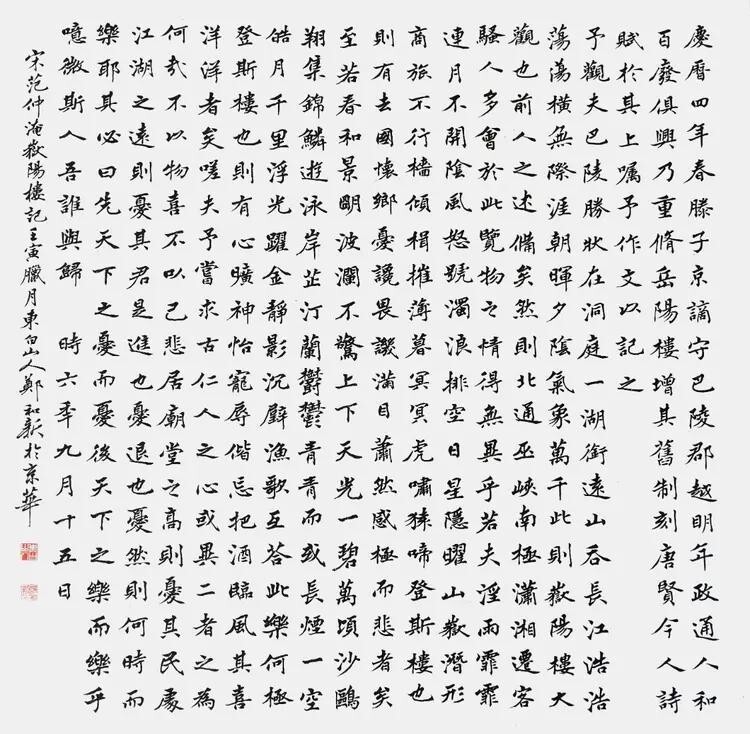 慶曆四年春滕子京謫守巴陵郡越明年政通人和
百廢俱興乃重脩岳陽樓增其舊制刻唐賢今人詩
賦於其上囑予作文以記之
予觀夫巴陵勝狀在洞庭一湖銜遠山吞長江浩浩
蕩蕩橫無際涯朝暉夕陰氣象萬千此則嶽陽樓大
觀也前人之述備矣然則北通巫峽南極瀟湘遷客
騷人多會於此覽物之情得無異乎若夫淫雨霏霏
連月不開陰風怒號濁浪排空日星隱曜山嶽潛形
商旅不行檣傾楫摧薄暮冥冥虎嘯猿啼登斯樓也
則有去國懷鄉憂讒畏譏滿目蕭然感極而悲者矣
至若春和景明波瀾不驚上下天光一碧萬頃沙鷗
翔集錦鱗遊泳岸芷汀蘭鬱鬱青青而或長煙一空
皓月千里浮光躍金靜影沉璧漁歌互答此樂何極
登斯樓也則有心曠神怡寵辱偕忘把酒臨風其喜
洋洋者矣嗟夫予嘗求古仁人之心或異二者之為
何哉不以物喜不以己悲居廟堂之高則憂其民處
江湖之遠則憂其君是進也憂退也憂然則何時而
樂耶其必曰先天下之憂而憂後天下之樂而樂乎
噫微斯人吾誰與歸 時六年九月十五日
宋范仲淹嶽陽樓記壬寅臘月東白山人鄭和新於京華